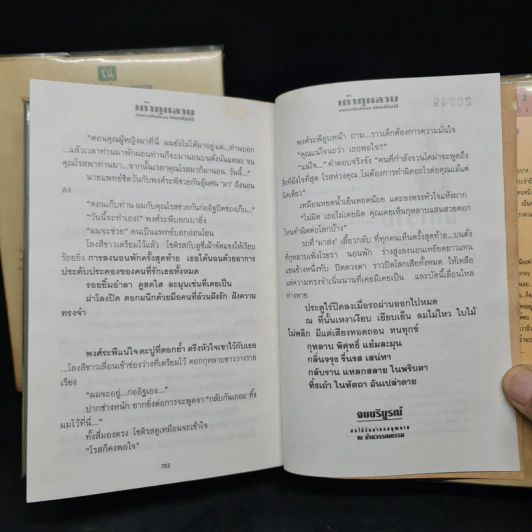 เก้ากุหลาบ
"ตอนคุณผู้หญิงมาที่นี่ ผมยังไม่ได้มาอยู่แต่...ท่านบอก
...แล้วเวลาท่านมาพักผ่อนท่านก็จะมานอนบนตั่งนั่นแหละ จน
คุณโรสพาท่านมา...จากนั้นเวลาคุณโรสมาก็มานอน วันนี้..."
นายแพทย์ชิดวันกับพงศ์ระพีช่วยกันอุ้มคน 'มา' ถึงนอน
ลง
"ตอนเก็บท่าน ผมกับคุณโรสช่วยกันก่ออิฐปิดช่องเก็บ..."
"วันนี้จะทำเอง!" พงศ์ระพีบอกเบายิ่ง
"ผมจะช่วย" คนเป็นแพทย์บอกอ่อนโยน
โลงสีขาวเตรียมไว้แล้ว โชติรสกับสุรีย์ผ้าจัดแจงให้เรียบ
ร้อยยิ่ง การลงนอนพักครั้งสุดท้าย เธอได้นอนด้วยอาการ
ประคับประคองของคนที่รักเธอทั้งหมด
รอยยิ้มอำลา ดูสดใส ละมุนเช่นที่เคยเป็น
ฝาโลงปิด ตอกผนึกด้วยมือคนที่ล้วนฝังรัก ฝังความ
ทรงจำ
พงศ์ระพีแน่ใจ ตะปูที่ตอกย้ำ ตรึงหัวใจเขาไว้กับเธอ
...โลงสีขาวเลื่อนเข้าช่องว่างที่เตรียมไว้ ดอกกุหลาบขาววางราย
เรียง
"ผมจะอยู่...ก่ออิฐเอง..."
ปากช่างหนัก ยากยิ่งต่อการจะพูดจา "กลับกันเถอะ ทิ้ง
ผมไว้ที่นี่..."
ทั้งสี่มองตรง โชติรสดูเหมือนจะเข้าใจ
"โรสก็คงพอใจ"
752
เก้ากุหลาบ
พงศ์ระพีลูบหน้า ถาม...ราวเด็กต้องการความมั่นใจ
"คุณแน่ใจนะว่า เธอพอใจ?"
"แน่ใจ..." คำตอบจริงจัง "คนที่กำลังจวนใคม่าจะพูดถึง
สิ่งที่ฝังใจที่สุด โรสห่วงคุณ ไม่ต้องการทำผิดอะไรต่อคุณแม้แต่
นิดเดียว"
เหมือนหยดน้ำเย็นหยดน้อย แตะลงตรงหัวใจแห้งผาก
"ไม่ผิด เธอไม่เคยผิด คุณเคยเห็นกุหลาบแสนสวยดอก
ไหนทำผิดต่อโลกบ้าง"
รถที่ 'มาส่ง' เลี้ยวกลับ ที่ทุกคนเห็นครั้งสุดท้าย...บนตั่ง
ที่กุหลาบเพิ่งโรยรา นอนพัก ร่างสูงลงนอนเหยียดยาวแทน
แขนข้างหนึ่งทับ ปิดดวงตา ราวปิดโลกเสียทั้งหมด ให้เหลือ
แต่ความทรงจำเนิ่นนานที่เคยมีเคยเป็น และบัดนี้เลื่อนไหล
ค่าหาย
ประตูไร่ปิดลงเมื่อรถผ่านออกไปหมด
ณ ที่นั้นเหงาเงียบ เยียบเย็น ลมไม่ไหว ใบไม้
ไม่พลิก มีแต่เสียงทอดถอน ทนทุกข์
กุหลาบ พิสุทธิ์ แย้มละมุน
กลิ่นจรุง รื่นรส เสน่หา
กลับราน แหลกสลาย ในพริบตา
ทิ้งเถ้า ในหัตถา อันเปล่าดาย
จบบริบูรณ์